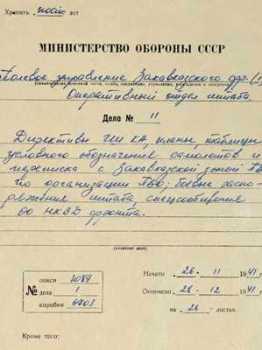 Хранить пост
МИНИСТЕРСТВО ОБОРОНЫ СССР
Полевое управление Закавказского фр.
Оперативный отдел штаба
Дело № 11
Директивы ГШ КА, планы, таблицы
условного обозначения самолетов и
переписка с Закавказской зоной ПВО
по организации ПВО; боевые распо-
ряжения штаба, спецсообщения
ОО НКВД фронта.
№
описи 7089
дела 1
коробки 6803
Начато „26“ 11 1941
Окончено „28“ 12 1941
на 26 листах
Кроме того: